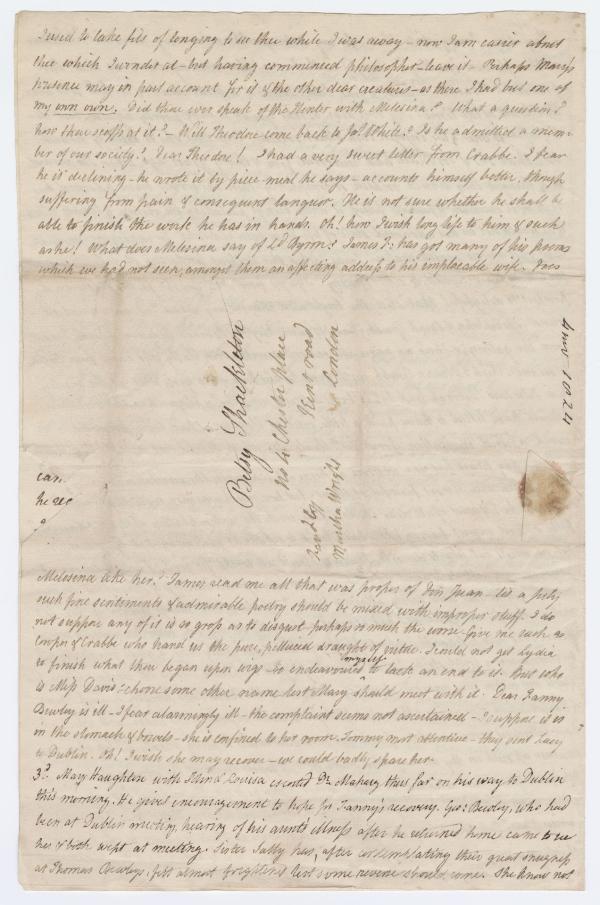 I used to take fits of longing to see thee while I was away – now I am easier about
thee which I wonder at – but having commenced philosopher – leave it – Perhaps Mary's
presence may in part account for it & the other dear creatures – as there I had but one of
my own own. Did thou ever speak of the Hunter with Melesina? What a question?
how thou scoffs at it? – Will Theodore come back to Jos. White? Is he admitted a mem-
ber of our society? Dear Theodore! I had a very sweet letter from Crabbe. I fear
he is declining – he wrote it by piece-meal he says – accounts himself better, though
suffering from pain & consequent languor. He is not sure whether he shall be
able to finish the work he has in hands. Oh! how I wish long life to him & such
as he! What does Melesina say of Ld Byron? James J: has got many of his poems
which we had not seen, amongst them an affecting address to his implacable wife. Does
Betsy Shackleton
No 4 Chester place
Kent road
London
favd by
Martha Wright
1824
can.
he
Melesina like her? James read me all that was proper of Don Juan – tis a pity
such fine sentiments & admirable poetry should be mixed with improper stuff. I do
not suppose any of it is so gross as to disgust – perhaps so much the worse – give me such as
Cowper & Crabbe who hand us the pure, pellucid draught of virtue. I could not get Lydia
to finish what thou began upon wigs – so endeavoured myself to tack an end to it. But who
is Miss Davis? chone some other name lest Mary should meet with it. Dear Fanny
Bewley is ill – I fear alarmingly ill – the complaint seems not ascertained – I suppose it is
in the stomach & bowels – she is confined to her room. Tommy most attentive – they sent Lucy
to Dublin. Oh! I wish she may recover – we could badly spare her.
3d. Mary Haughton with Louisa escorted Dr Mahary thus far on his way to Dublin
this morning. He gives encouragement to hope for Fanny's recovery. Geo: Bewley, who had
been at Dublin meeting, hearing of his aunt's illness after he returned home came to see
her & both wept at meeting. Sister Sally has, after contemplating their great snugness
at Thomas Bewley's, felt almost frightened lest some reverse should come. She knew not